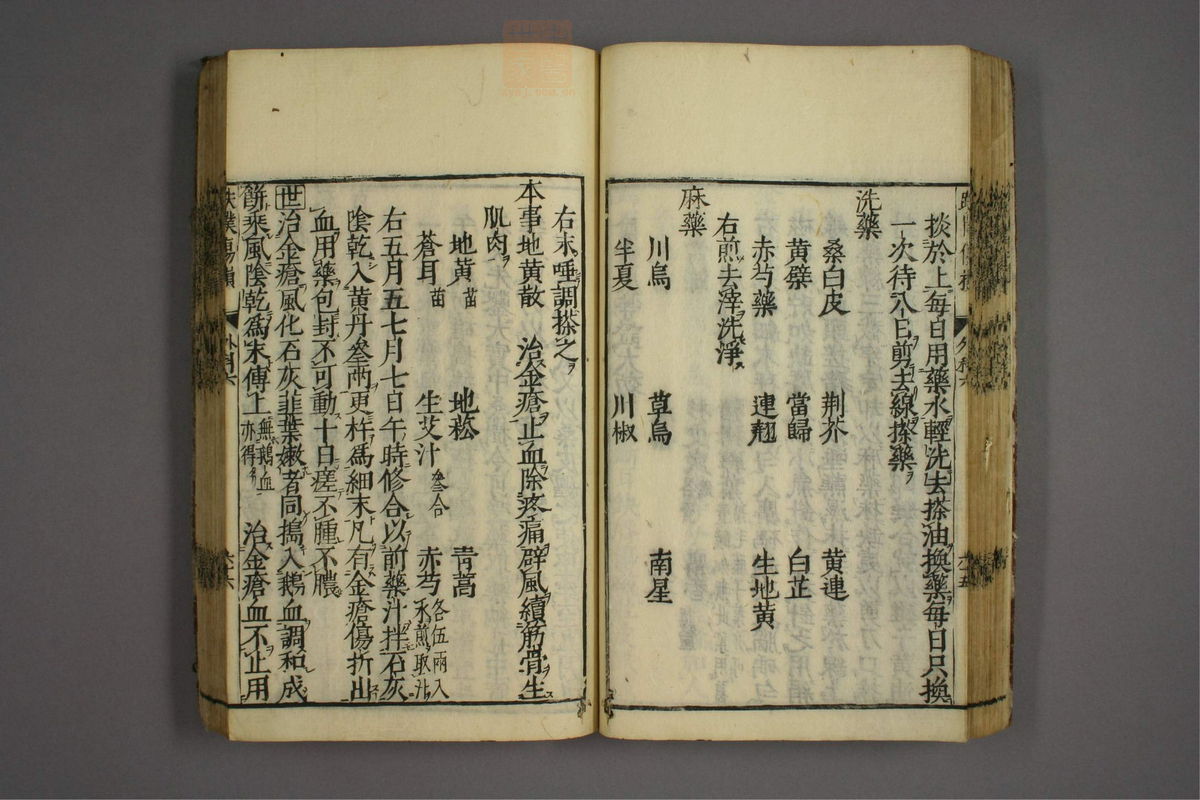 掞於上每日用藥水輕洗去搽油換藥每日只換
一次待八日剪去線搽藥
洗藥
桑白皮 荆芥 黄連
黄蘗 當歸 白芷
赤芍藥 連翹 生地黄
右煎去滓洗淨
麻藥
川烏 草烏 南星
半夏 川椒
右末唾調搽之
本事地黄散 治金瘡止血除疼痛辟風續筋骨生
肌肉
地黄苗 地菘 青蒿
蒼耳苗 生艾汁叁合 赤芍各伍兩入水煎取汁
右五月五七月七日午時修合以前藥汁拌石灰
陰乾入黄丹叁兩更杵爲細末凡有金瘡傷折出
血用藥包封不可動十日瘥不腫不膿
世治金瘡風化石灰韮葉嫩者同搗入鵝血調和成
餅乘風陰乾爲末傅上無鵝血亦得 治金瘡血不止用